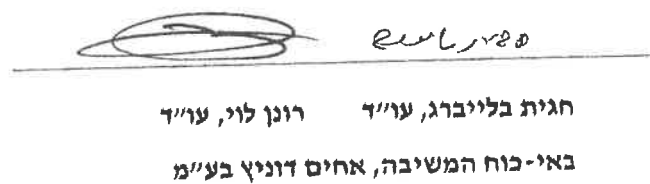 חגית בלייברג, עו״ד רונן לוי, עו״ד
באי-כוח המשיבה, אחים דוניץ בע״מ